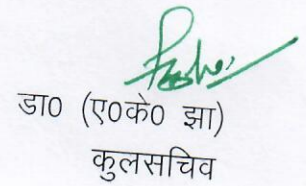 डा0 (ए0के0 झा)
कुलसचिव